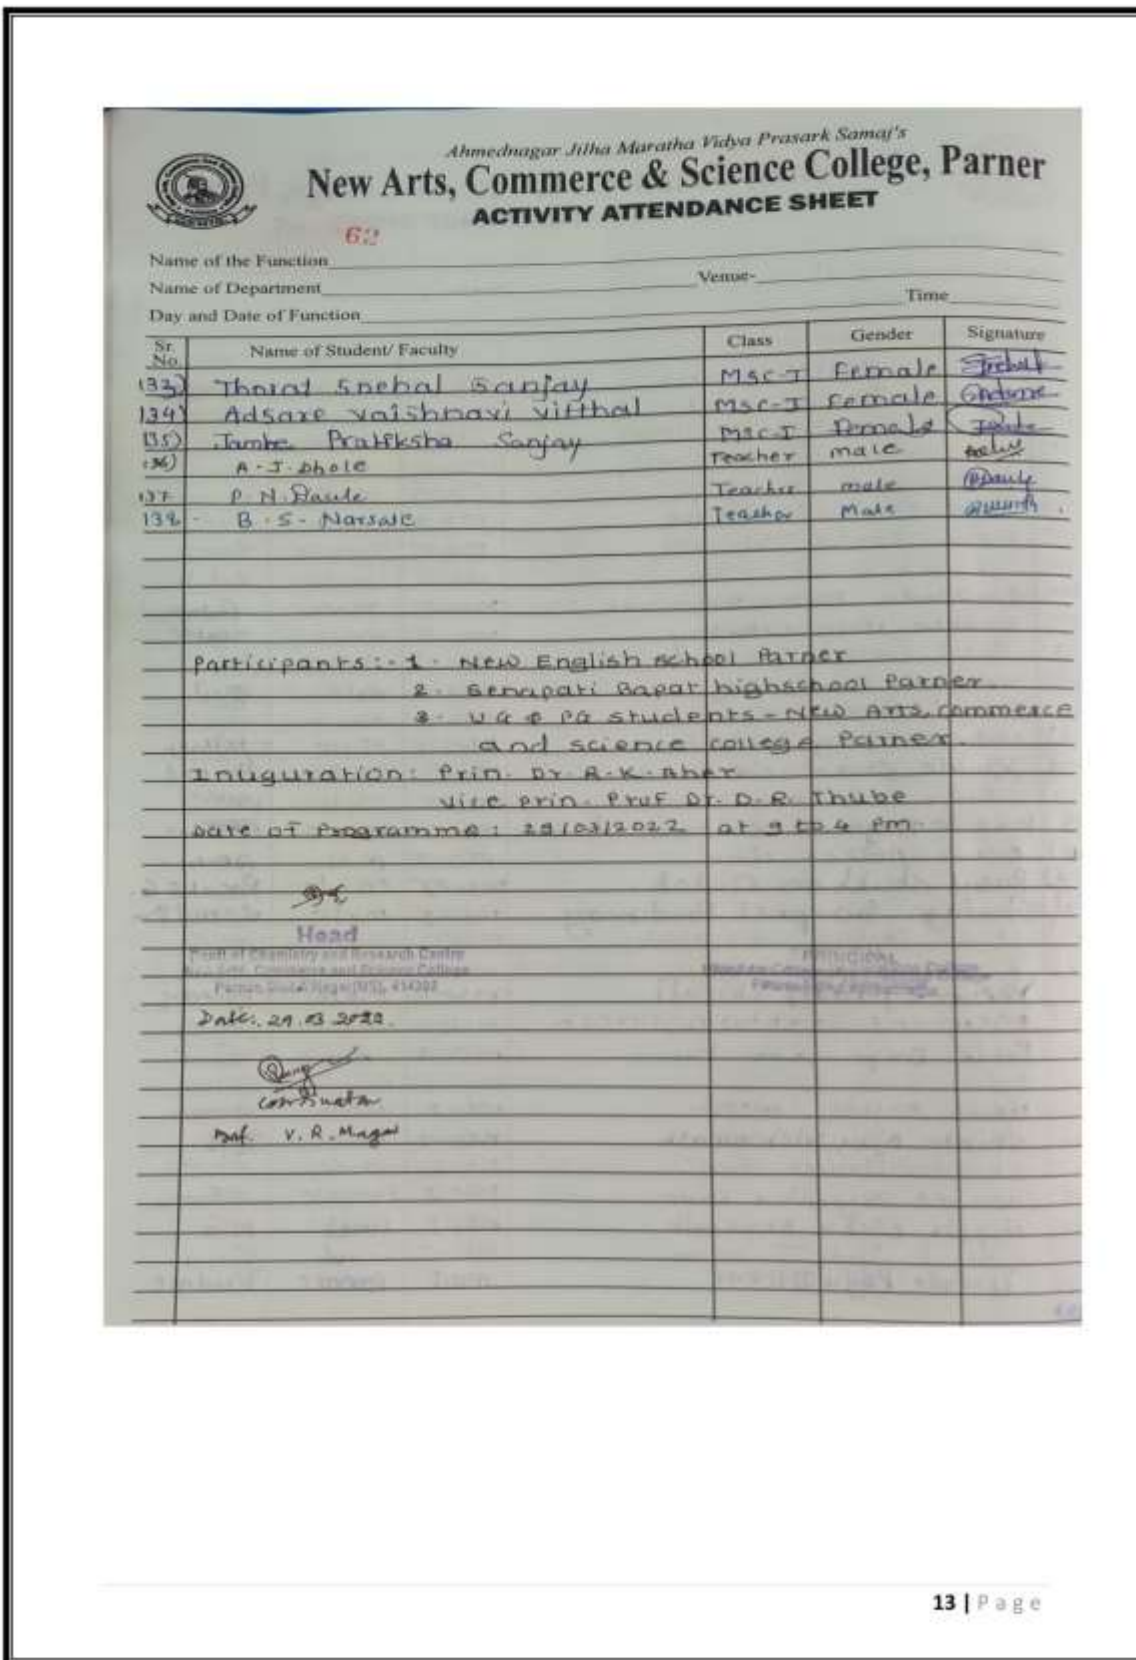 Ahmednagar Jilha Maratha Vidya Prasark Samaj's
New Arts, Commerce & Science College, Parner
ACTIVITY ATTENDANCE SHEET
62
Name of the Function
Name of Department Venue-
Day and Date of Function Time
Sr. No. Name of Student/ Faculty Class Gender Signature
133) Thorat Snehal Sanjay MSC-I Female
134) Adsare vaishnavi vitthal MSC-I Female
135) Jambe Pratiksha Sanjay MSC-I Female
136) A.J. Dhole Teacher male
137 P.N. Daule Teacher male
138 - B.S. Narsale Teacher Male
Participants:- 1. New English school Parner
2. Senapati Bapat highschool Parner
3. UG & PG students - New Arts, commerce
and science college Parner.
Inuguration: Prin. Dr. R.K. Aher
vice prin. Prof Dr. D.R. Thube
Date of Programme: 29/03/2022 at 9 to 4 pm.
Head
Deptt of Chemistry and Research Centre
New Arts, Commerce and Science College
PRINCIPAL
Date:. 29.03.2022.
coordinator
Prof. V.R. Magar
13 | Page